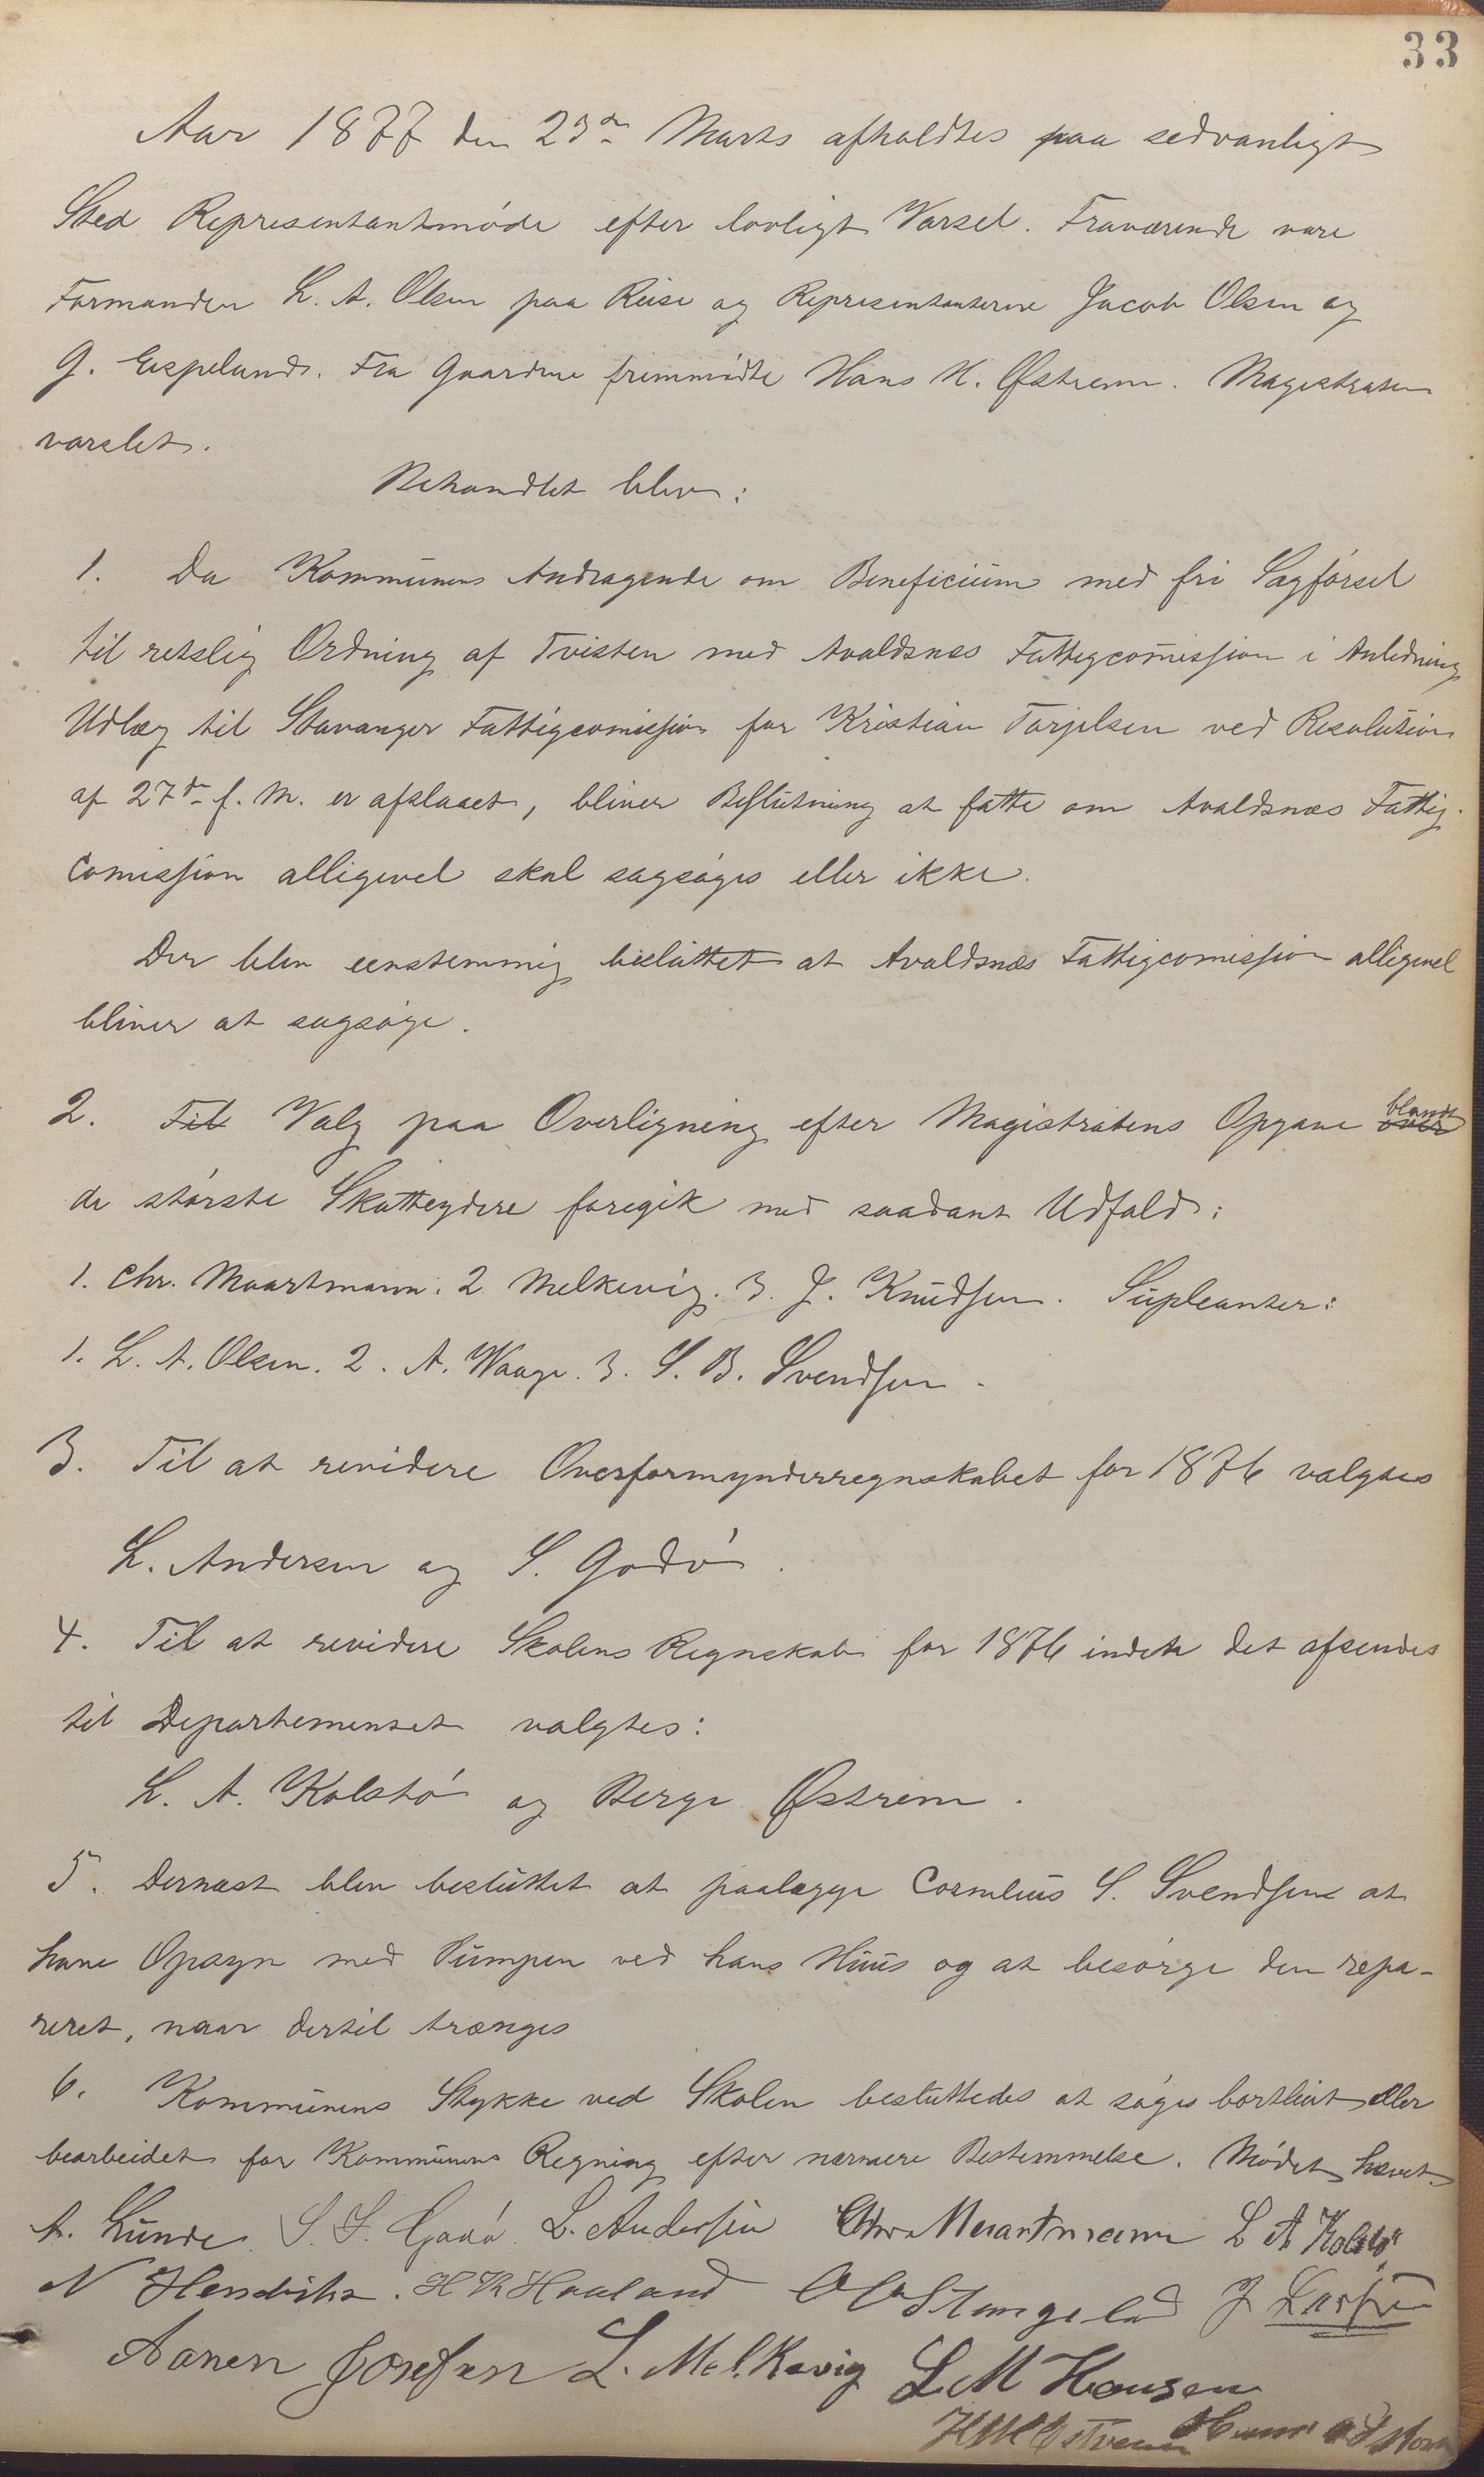 33
Aar 1877 den 23de Marts afholdtes paa sedvanligt
Sted Representantmøde efter lovligt Varsel. Fraværende vare
Formanden L. A. Olsen paa Reise og Representanterne Jacob Olsen og
G. Espeland. Fra Gaardene fremmødte Hans M. Østrem. Magistraten
varslet.
Behandlet blev:
1. Da Kommunens Andragende om Beneficium med fri Sagførsel
til retslig Ordning af Tvisten med Avaldsnæs Fattigcomission i Anledning
Udlæg til Stavanger Fattigcomission for Kristian Torjelsen ved Resolution
af 27de f. M. er afslaaet, bliver Beslutning at fatte om Avaldsnæs Fattig-
Comission alligevel skal sagsøges eller ikke.
Der blev eenstemmig besluttet at Avaldsnæs Fattigcomission alligevel
bliver at sagsøge.
2. Til Valg paa Overligning efter Magistratens Opgave over blandt
de største Skatteydere foregik med saadant Udfald:
1. Chr. Maartmann. 2 Melkevig. 3. J. Knudsen. Supleanter:
1. L. A. Olsen. 2. A. Waage. 3. S. B. Svendsen.
3. Til at revidere Overformynderregnskabet for 1876 valgtes
L. Andersen og S. Godø.
4. Til at revidere Skolens Regnskab for 1876 indete det afsendes
til Departementet valgtes:
L. A. Kolstø og Berge Østrem.
5. Dernæst blev besluttet at paalægge Cornelius S. Svendsen at
have Opsyn med Pumpen ved hans Huus og at besørge den repa-
reret, naar dertil trænges
6. Kommunens Stykke ved Skolen besluttedes at søges bortleiet eller
bearbeidet for Kommunens Regning efter nærmere Bestemmelse. Mødet hævet.
A. Lunde. S. S. Godø. L. Andersen Chr. Maartmann L A Kolstø
N Hendriks. H R Haaland Stangeland J Larsen
Aanen Josefsen L. Melkevig L M Hansen
H M Østrem